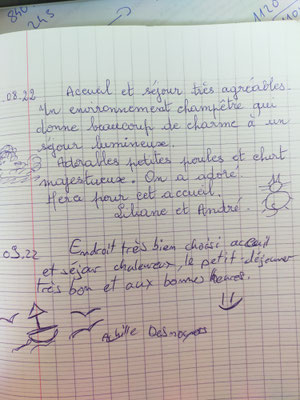 840
245
1120
.08.22
Accueil et séjour très agréables.
Un environnement champêtre qui
donne beaucoup de charme à un
séjour lumineux.
Adorables petites poules et chat
majestueux. On a adoré.
pour cet accueil.
Liliane et André.
09.22
Endroit très bien choisi accueil
et séjour chaleureux, le petit déjeuner
très bon et aux bonnes heures.
Achille